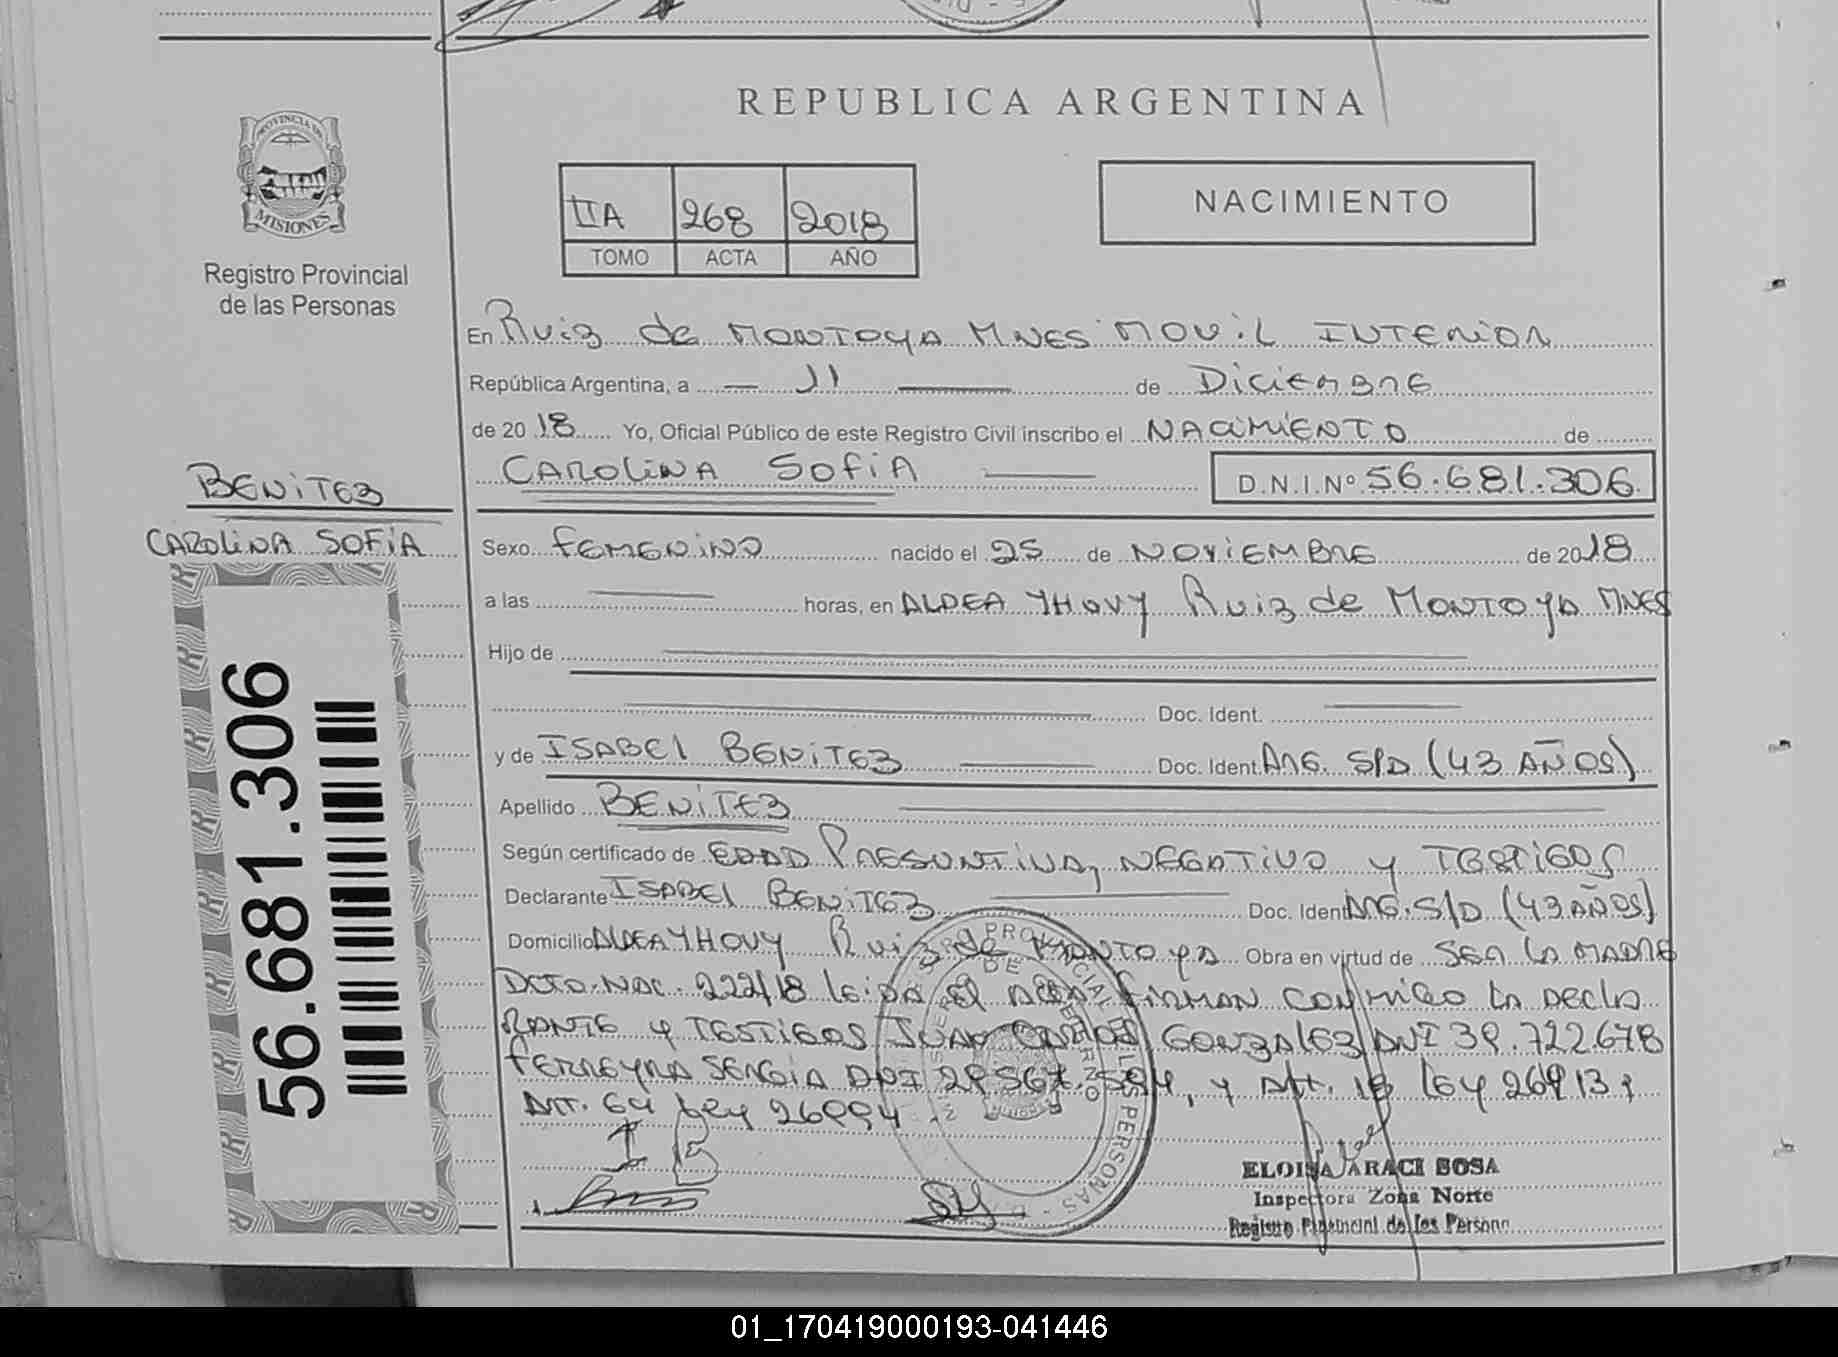 REPUBLICA ARGENTINA
PROVINCIA DE
MISIONES
Registro Provincial
de las Personas
IIA 268 2018
TOMO ACTA AÑO
NACIMIENTO
En Ruiz de MONTOYA MNES MOVIL INTERIOR
República Argentina, a — 11 — de DiciEMBRE
de 20 18 Yo, Oficial Público de este Registro Civil inscribo el NACIMIENTO de
CAROLINA SOFIA — D.N.I.Nº 56.681.306
BENITEZ
CAROLINA SOFIA
Sexo FEMENINO nacido el 25 de NOVIEMBRE de 2018
a las — horas, en ALDEA YHOVY Ruiz de MONTOYA MNES
Hijo de —
— Doc. Ident. —
y de ISABEL BENITEZ — Doc. Ident. ARG. S/D (43 AÑOS)
Apellido BENITEZ —
Según certificado de EDAD PRESUNTIVA, NEGATIVO y TESTIGOS
Declarante ISABEL BENITEZ — Doc. Ident ARG. S/D (43 AÑOS)
Domicilio ALDEA YHOVY Ruiz de MONTOYA Obra en virtud de SER LA MADRE
DCTO. NAC. 222/18 LEIDA EL ACTA FIRMAN CONMIGO LA DECLA
RANTE y TESTIGOS JUAN CARLOS GONZALEZ DNI 39.722.678
FERREYRA SERGIA DNI 29.567.594, y Art. 18 Ley 26913 y
Art. 64 Ley 26994.
I B
ELOISA ARACI SOSA
Inspectora Zona Norte
Registro Provincial de las Personas
56.681.306
01_170419000193-041446